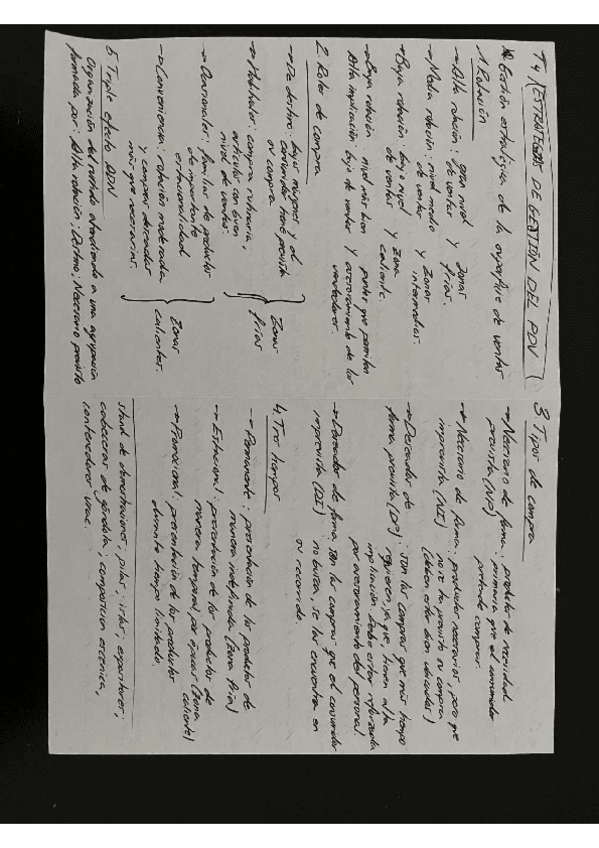 T4 ESTRATEGIAS DE GESTIÓN DEL PDV
Gestión estratégica de la superficie de ventas
1. Rotación
→ Alta rotación: gran nivel de ventas y zonas frías.
→ Media rotación: nivel medio de ventas y zonas intermedias.
→ Baja rotación: bajo nivel de ventas y zona caliente.
→ Baja rotación: nivel más bien puntos que permitan
Alta implicación bajo de ventas y asesoramiento de los vendedores.
2. Roles de compra
→ De destino: bajos y el
consumidor tiene prevista
su compra.
→ Habituales: compra rutinaria,
artículos con buen
nivel de ventas.
Zonas frías
→ Ocasionales: familias de productos
de importante
estacionalidad
→ Conveniencia: rotación moderada
y compras deseadas
más que necesarias.
Zonas calientes.
5. Triple efecto DDN
Organización del surtido atendiendo a una agrupación
formada por: Alta rotación; Destino; Necesario previsto
3. Tipos de compra
→ Necesario de forma: productos de necesidad
prevista (NP) primaria que el consumidor
pretende comprar.
→ Necesario de forma: productos necesarios, pero que
imprevista (NI) no se ha previsto su compra
(deben estar bien ubicados)
→ Deseador de: son las compras que más tiempo
forma prevista (DP) requieren, ya que, tienen alta
implicación. Debe estar reforzada
por asesoramiento del personal.
→ Deseador de forma: son las compras que el consumidor
imprevista (DI) no busca, se las encuentra en
su recorrido.
4. Tres tiempos
→ Permanente: presentación de los productos de
manera indefinida (zona fría)
→ Estacional: presentación de los productos de
manera temporal por épocas (zona caliente)
→ Promocional: presentación de los productos
durante tiempo limitado.
stand de demostraciones, pilas, islas, expositores,
cabeceras de góndola, composición escénica,
contenedores